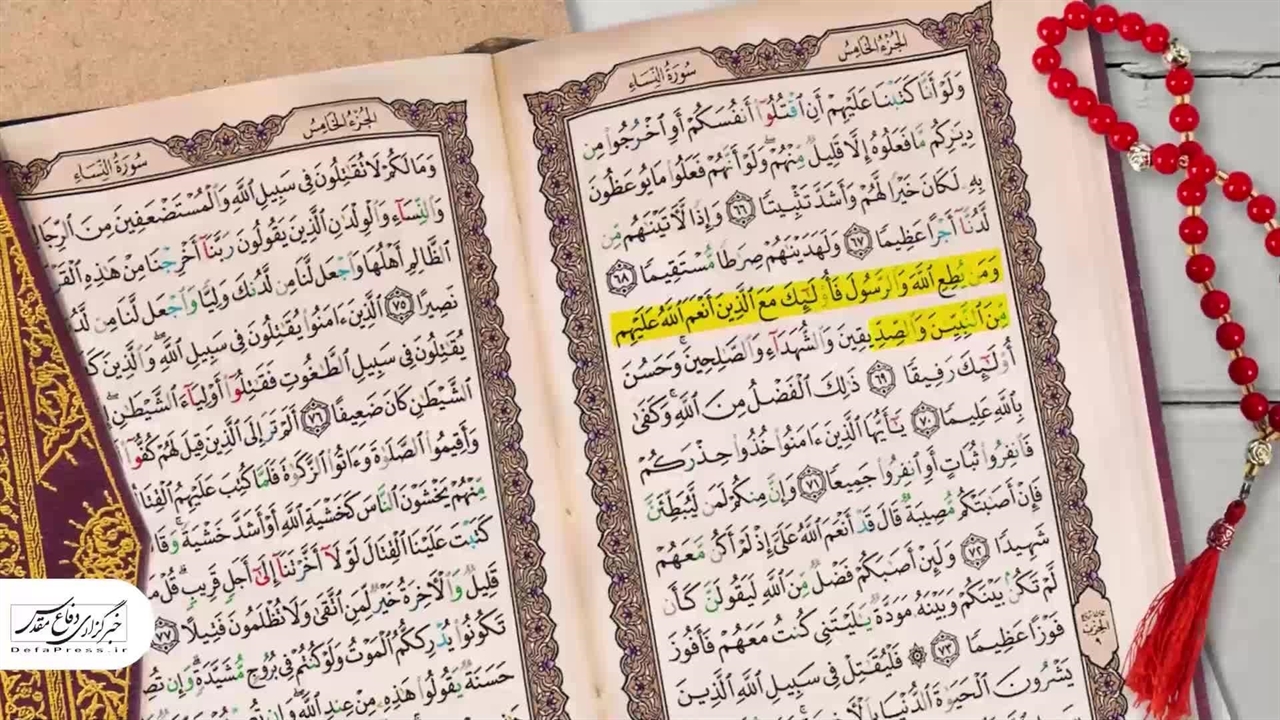 الجُزْءُ الخَامِسُ
سُورَةُ النِّسَاءِ
وَلَوْ أَنَّا كَتَبْنَا عَلَيْهِمْ أَنِ اقْتُلُوٓا۟ أَنفُسَكُمْ أَوِ اخْرُجُوا۟ مِن
دِيَـٰرِكُم مَّا فَعَلُوهُ إِلَّا قَلِيلٌ مِّنْهُمْ ۖ وَلَوْ أَنَّهُمْ فَعَلُوا۟ مَا يُوعَظُونَ
بِهِۦ لَكَانَ خَيْرًا لَّهُمْ وَأَشَدَّ تَثْبِيتًا ٦٦ وَإِذًا لَّـَٔاتَيْنَـٰهُم مِّن
لَّدُنَّآ أَجْرًا عَظِيمًا ٦٧ وَلَهَدَيْنَـٰهُمْ صِرَٰطًا مُّسْتَقِيمًا ٦٨
وَمَن يُطِعِ اللَّهَ وَالرَّسُولَ فَأُو۟لَـٰٓئِكَ مَعَ الَّذِينَ أَنْعَمَ اللَّهُ عَلَيْهِم
مِّنَ النَّبِيِّـۧنَ وَالصِّدِّيقِينَ وَالشُّهَدَآءِ وَالصَّـٰلِحِينَ ۚ وَحَسُنَ
أُو۟لَـٰٓئِكَ رَفِيقًا ٦٩ ذَٰلِكَ الْفَضْلُ مِنَ اللَّهِ ۚ وَكَفَىٰ
بِاللَّهِ عَلِيمًا ٧٠ يَـٰٓأَيُّهَا الَّذِينَ ءَامَنُوا۟ خُذُوا۟ حِذْرَكُمْ
فَانفِرُوا۟ ثُبَاتٍ أَوِ انفِرُوا۟ جَمِيعًا ٧١ وَإِنَّ مِنكُمْ لَمَن لَّيُبَطِّئَنَّ
فَإِنْ أَصَـٰبَتْكُم مُّصِيبَةٌ قَالَ قَدْ أَنْعَمَ اللَّهُ عَلَىَّ إِذْ لَمْ أَكُن مَّعَهُمْ
شَهِيدًا ٧٢ وَلَئِنْ أَصَـٰبَكُمْ فَضْلٌ مِّنَ اللَّهِ لَيَقُولَنَّ كَأَن
لَّمْ تَكُنۢ بَيْنَكُمْ وَبَيْنَهُۥ مَوَدَّةٌ يَـٰلَيْتَنِى كُنتُ مَعَهُمْ فَأَفُوزَ
فَوْزًا عَظِيمًا ٧٣ ۞ فَلْيُقَـٰتِلْ فِى سَبِيلِ اللَّهِ الَّذِينَ
يَشْرُونَ الْحَيَوٰةَ الدُّنْيَا
الجُزْءُ الخَامِسُ
سُورَةُ النِّسَاءِ
وَمَا لَكُمْ لَا تُقَـٰتِلُونَ فِى سَبِيلِ اللَّهِ وَالْمُسْتَضْعَفِينَ مِنَ الرِّجَالِ
وَالنِّسَآءِ وَالْوِلْدَٰنِ الَّذِينَ يَقُولُونَ رَبَّنَآ أَخْرِجْنَا مِنْ هَـٰذِهِ
الظَّالِمِ أَهْلُهَا وَاجْعَل لَّنَا مِن لَّدُنكَ وَلِيًّا وَاجْعَل لَّنَا مِن
نَصِيرًا ٧٥ الَّذِينَ ءَامَنُوا۟ يُقَـٰتِلُونَ فِى سَبِيلِ اللَّهِ ۖ وَالَّذِينَ
يُقَـٰتِلُونَ فِى سَبِيلِ الطَّـٰغُوتِ فَقَـٰتِلُوٓا۟ أَوْلِيَآءَ الشَّيْطَـٰنِ ۖ
الشَّيْطَـٰنِ كَانَ ضَعِيفًا ٧٦ أَلَمْ تَرَ إِلَى الَّذِينَ قِيلَ لَهُمْ كُفُّوٓا۟
وَأَقِيمُوا۟ الصَّلَوٰةَ وَءَاتُوا۟ الزَّكَوٰةَ فَلَمَّا كُتِبَ عَلَيْهِمُ
مِّنْهُمْ يَخْشَوْنَ النَّاسَ كَخَشْيَةِ اللَّهِ أَوْ أَشَدَّ خَشْيَةً ۚ
كَتَبْتَ عَلَيْنَا الْقِتَالَ لَوْلَآ أَخَّرْتَنَآ إِلَىٰٓ أَجَلٍ قَرِيبٍ ۗ قُلْ
قَلِيلٌ وَالْـَٔاخِرَةُ خَيْرٌ لِّمَنِ اتَّقَىٰ وَلَا تُظْلَمُونَ فَتِيلًا ٧٧
تَكُونُوا۟ يُدْرِككُّمُ الْمَوْتُ وَلَوْ كُنتُمْ فِى بُرُوجٍ مُّشَيَّدَةٍ ۗ وَإِن
حَسَنَةٌ يَقُولُوا۟ هَـٰذِهِۦ مِنْ عِندِ اللَّهِ ۖ وَإِن
خبرگزاری دفاع مقدس
DefaPress.ir